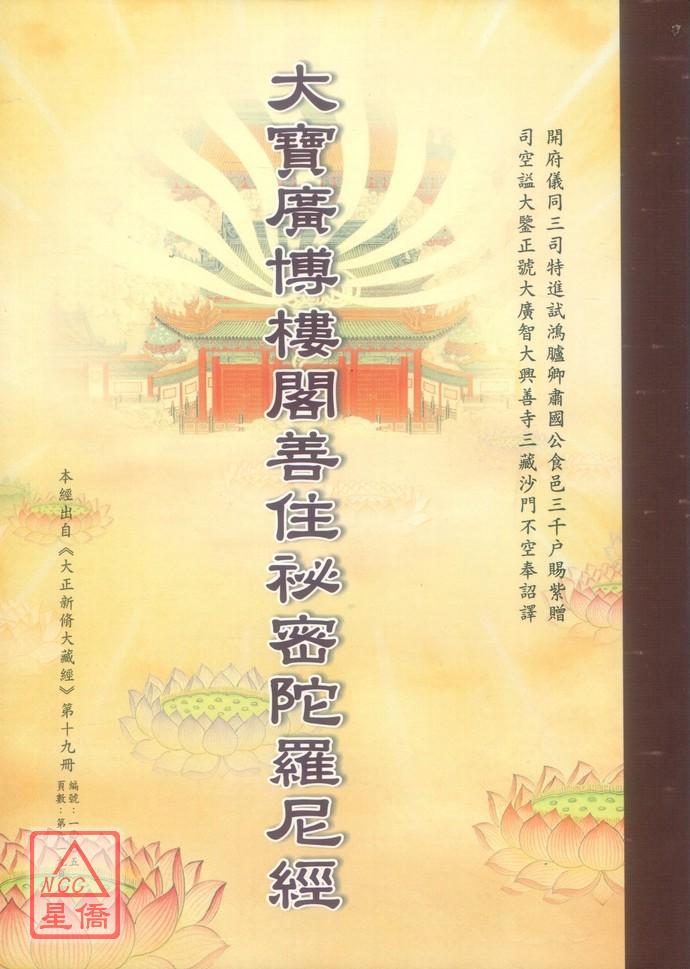 開府儀同三司特進試鴻臚卿肅國公食邑三千户賜紫贈
司空謚大鑒正號大廣智大興善寺三藏沙門不空奉詔譯
大寶廣博樓閣善住祕密陀羅尼經
本經出自《大正新脩大藏經》第十九冊
編號：一
五
頁數：第
NCC
星僑